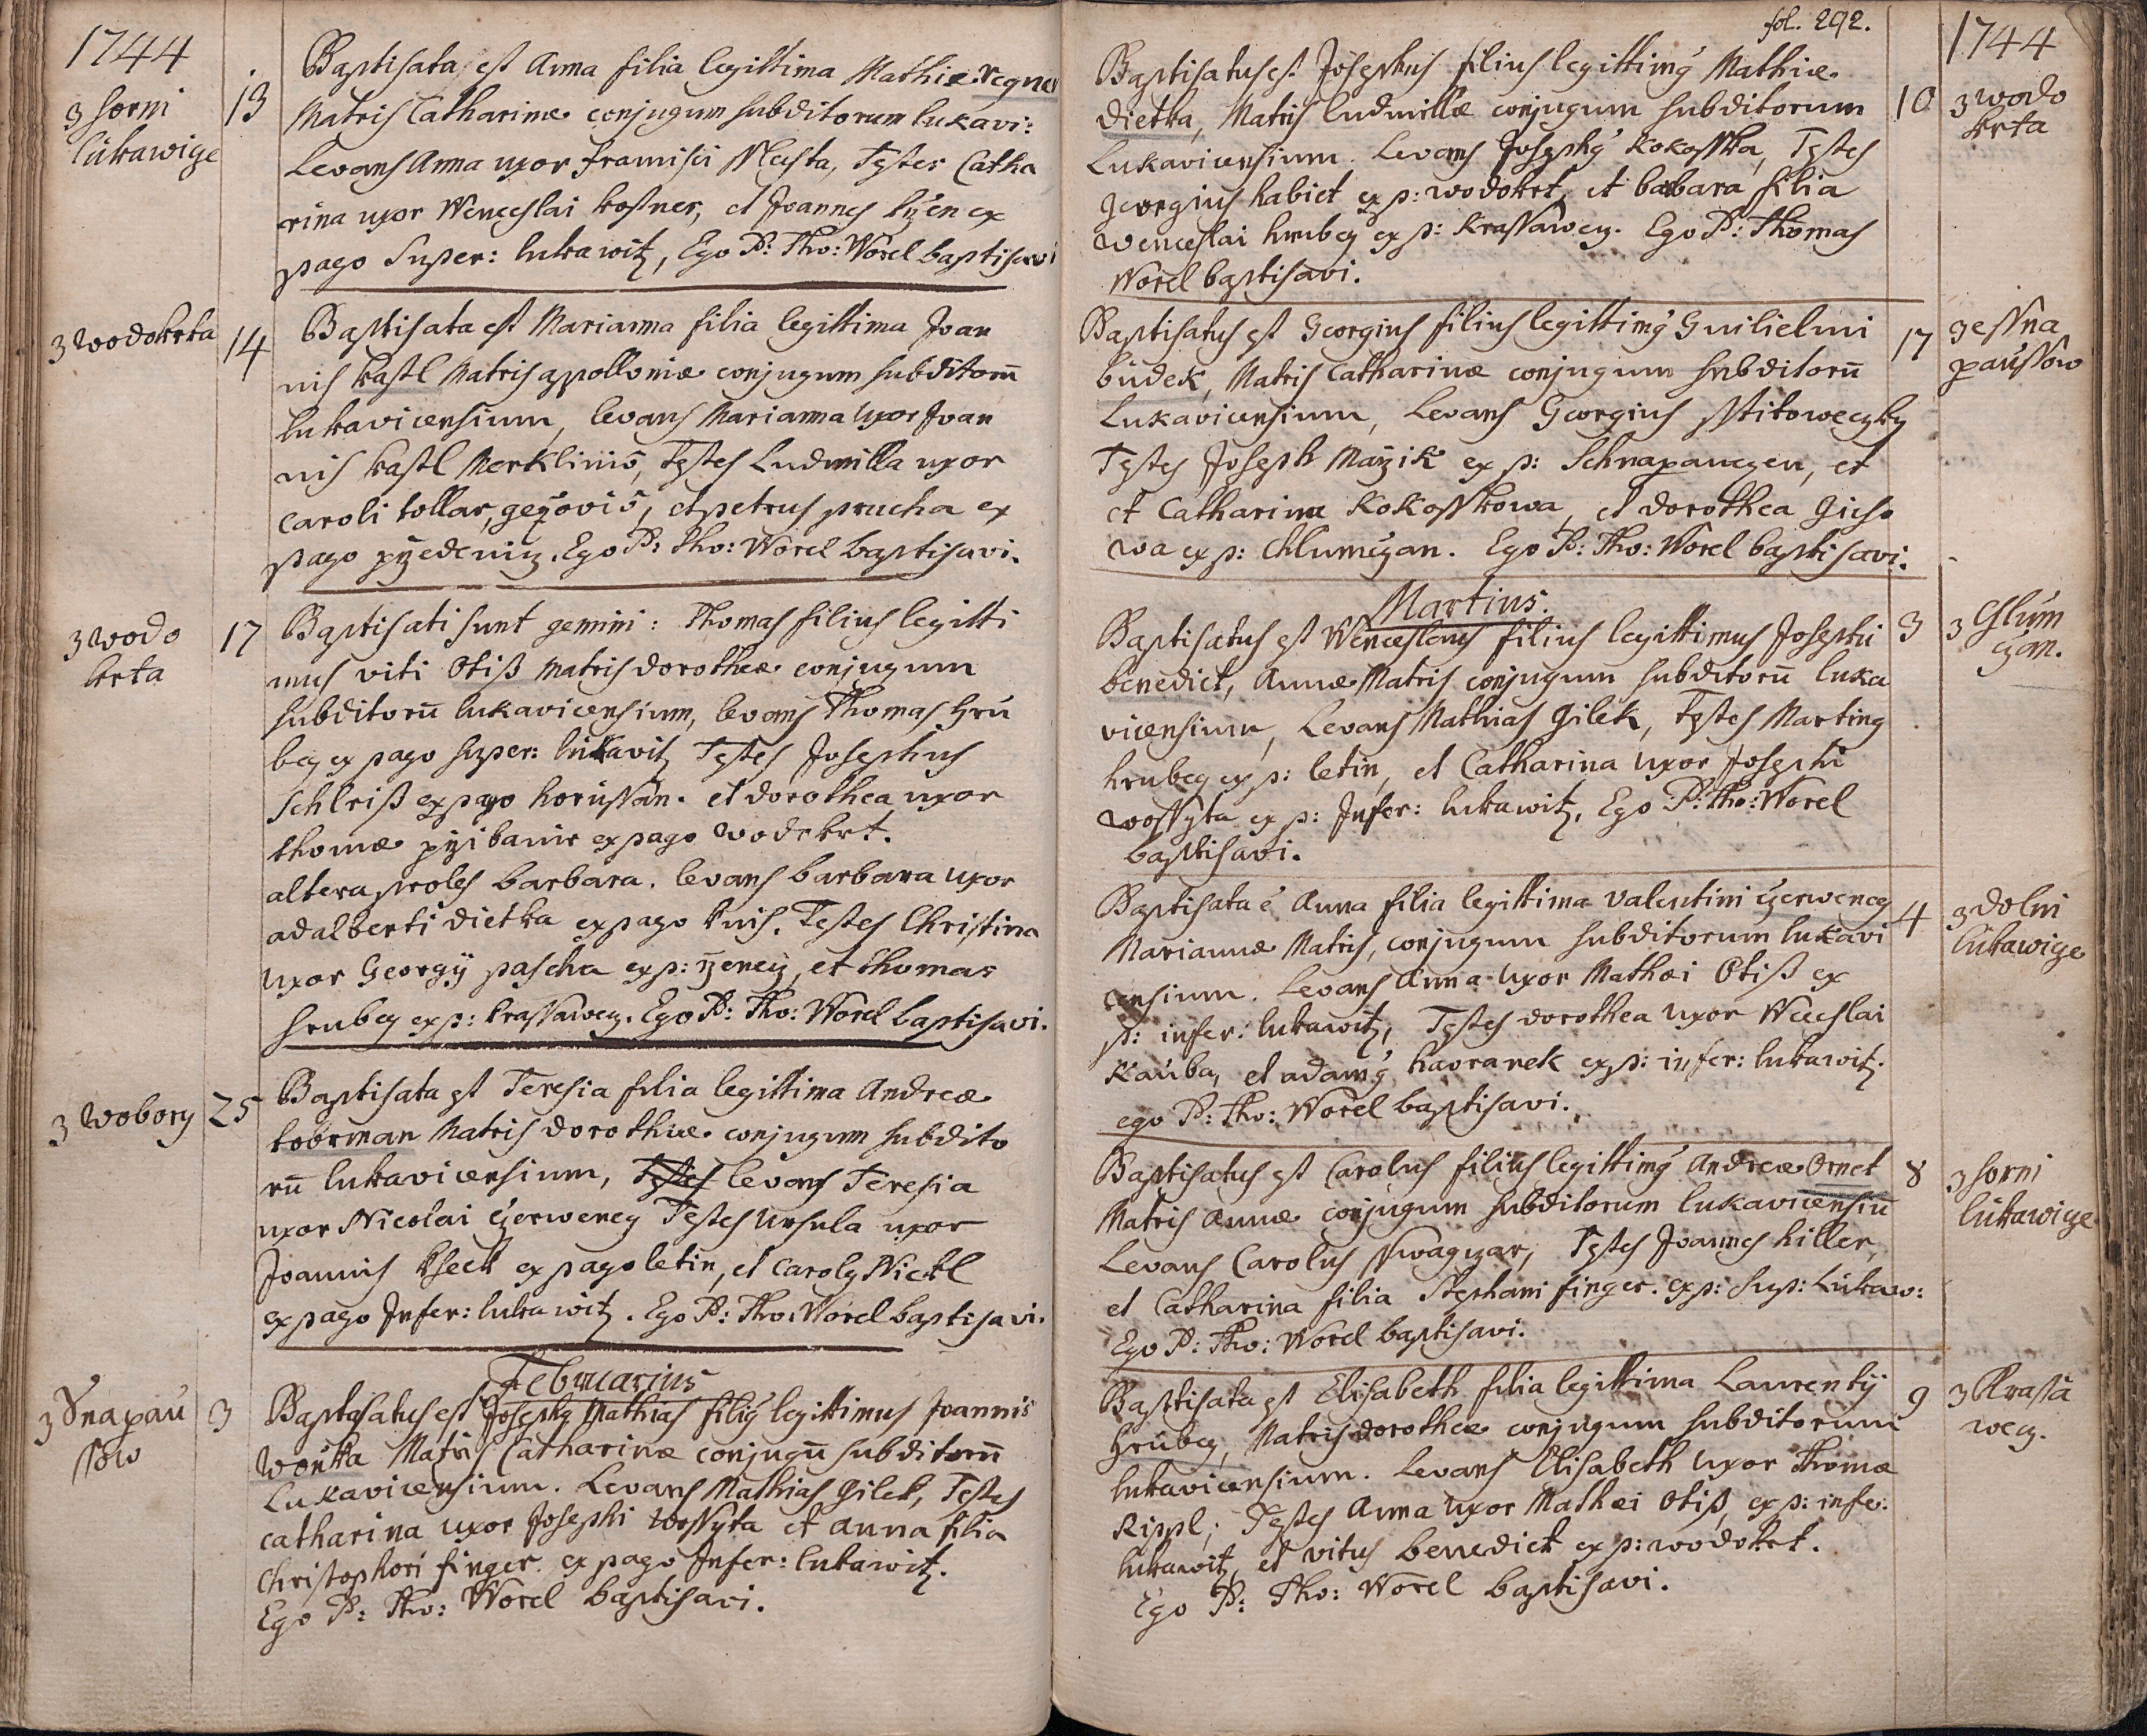 1744
z horni
lukawize
13
Baptisata est Anna filia legittima Mathiæ Regner
Matris Catharinæ conjugum subditorum lukavi:
Levans Anna uxor Francisci Tester Catha
rina uxor Wenceslai kostner, et Joannes ex
pago Super: lukawitz, Ego P: Tho: Worel baptisavi
z wodokrta
14
Baptisata est Marianna filia legittima Joan
nis kastl Matris apolloniæ conjugum subditorū
lukavicensium, levans Marianna uxor Joan
nis kastl Merklinis, testes Ludmilla uxor
caroli tollar, et petrus prucha ex
pago Ego P: Tho: Worel baptisavi.
z wodo
krta
17
Baptisati sunt gemini: Thomas filius legitti
mus viti Otiß Matris dorotheæ conjugum
subditorū lukavicensium, levans Thomas hru
bey ex pago super: lukavitz Testes Josephus
Schleiß ex pago horussan. et dorothea uxor
thomæ ex pago wodokrt.
altera proles barbara. levans barbara uxor
adalberti dietka ex pago knis. Testes Christina
uxor Georgÿ pascha ex p: et thomas
hrubey ex p: krassawcz. Ego P: Tho: Worel baptisavi.
z wobory
25
Baptisata est Teresia filia legittima Andreæ
kobrman Matris dorotheæ conjugum subdito
rū lukavicensium, Testes levans Teresia
uxor Nicolai czerweney Testes Ursula uxor
Joannis ex pago letin, et Carolg Nickl
ex pago Infer: lukawitz. Ego P: Tho: Worel baptisavi.
Februarius
z Snapau
ssow
3
Baptisatus est Josephg Mathias filig legittimus Joannis
woitka Matris Catharinæ conjugū subditorū
Lukavicensium. Levans Mathias Gilek, Testes
catharina uxor Josephi wossyta et anna filia
Christophori finger ex pago Infer: lukawitz.
Ego P: Tho: Worel baptisavi.
fol. 292.
1744
Baptisatus est Josephus filius legittimg Mathiæ
dietka, Matris ludmillæ conjugum subditorum
Lukavicensium. Levans Josephg Kokosska, Testes
Georgius habiet ex p: wodokrt, et babara filia
wenceslai hrubey ex p: krassawcz. Ego P: Thomas
Worel baptisavi.
10
z wodo
krta
Baptisatus est Georgius filius legittimg Guilielmi
budek, Matris Catharinæ conjugum subditorū
Lukavicensium, Levans Georgius sstitoweczky
Testes Joseph Mayzik ex p: Schnapauczen, et
et Catharina Kokosskowa, et dorothea Gicho
wa ex p: Chlumczan. Ego P: Tho: Worel baptisavi.
17
zessna
paussow
Martius.
Baptisatus est Wenceslaus filius legittimus Josephi
benedict, Annæ Matris conjugum subditorū luka
vicensium, Levans Mathias Gilek, testes Marting
hrubey ex p: letin, et Catharina uxor Josephi
wossyta ex p: Infer: lukawitz, Ego P: Tho: Worel
baptisavi.
3
z Glum
czan.
Baptisata ē Anna filia legittima valentini czerweney
Mariannæ Matris, conjugum subditorum lukavi
censium. Levans Anna uxor Mathæi Otiß ex
p: infer: lukawitz, Testes dorothea uxor Weceslai
Kauba, et adamg havranek ex p: infer: lukawitz.
ego P: Tho: Worel baptisavi.
4
z dolni
lukawize
Baptisatus est Carolus filius legittimg Andreæ Ornet
Matris Annæ conjugum subditorum lukavicensiū
Levans Carolus Testes Joannes hiller,
et Catharina filia Stephani finger. ex p: sup: Lukaw:
Ego P: Tho: Worel baptisavi.
8
z horni
lukawize
Baptisata est Elisabeth filia legittima Laurentÿ
hrubey, Matris dorotheæ conjugum subditorum
lukavicensium. Levans Elisabeth uxor Thomæ
Rippl; Testes Anna uxor Mathæi Otiß, ex p: infe:
lukawitz, et vitus benedict ex p: wodokrt.
Ego P: Tho: Worel baptisavi.
9
z Krasa
wcz.